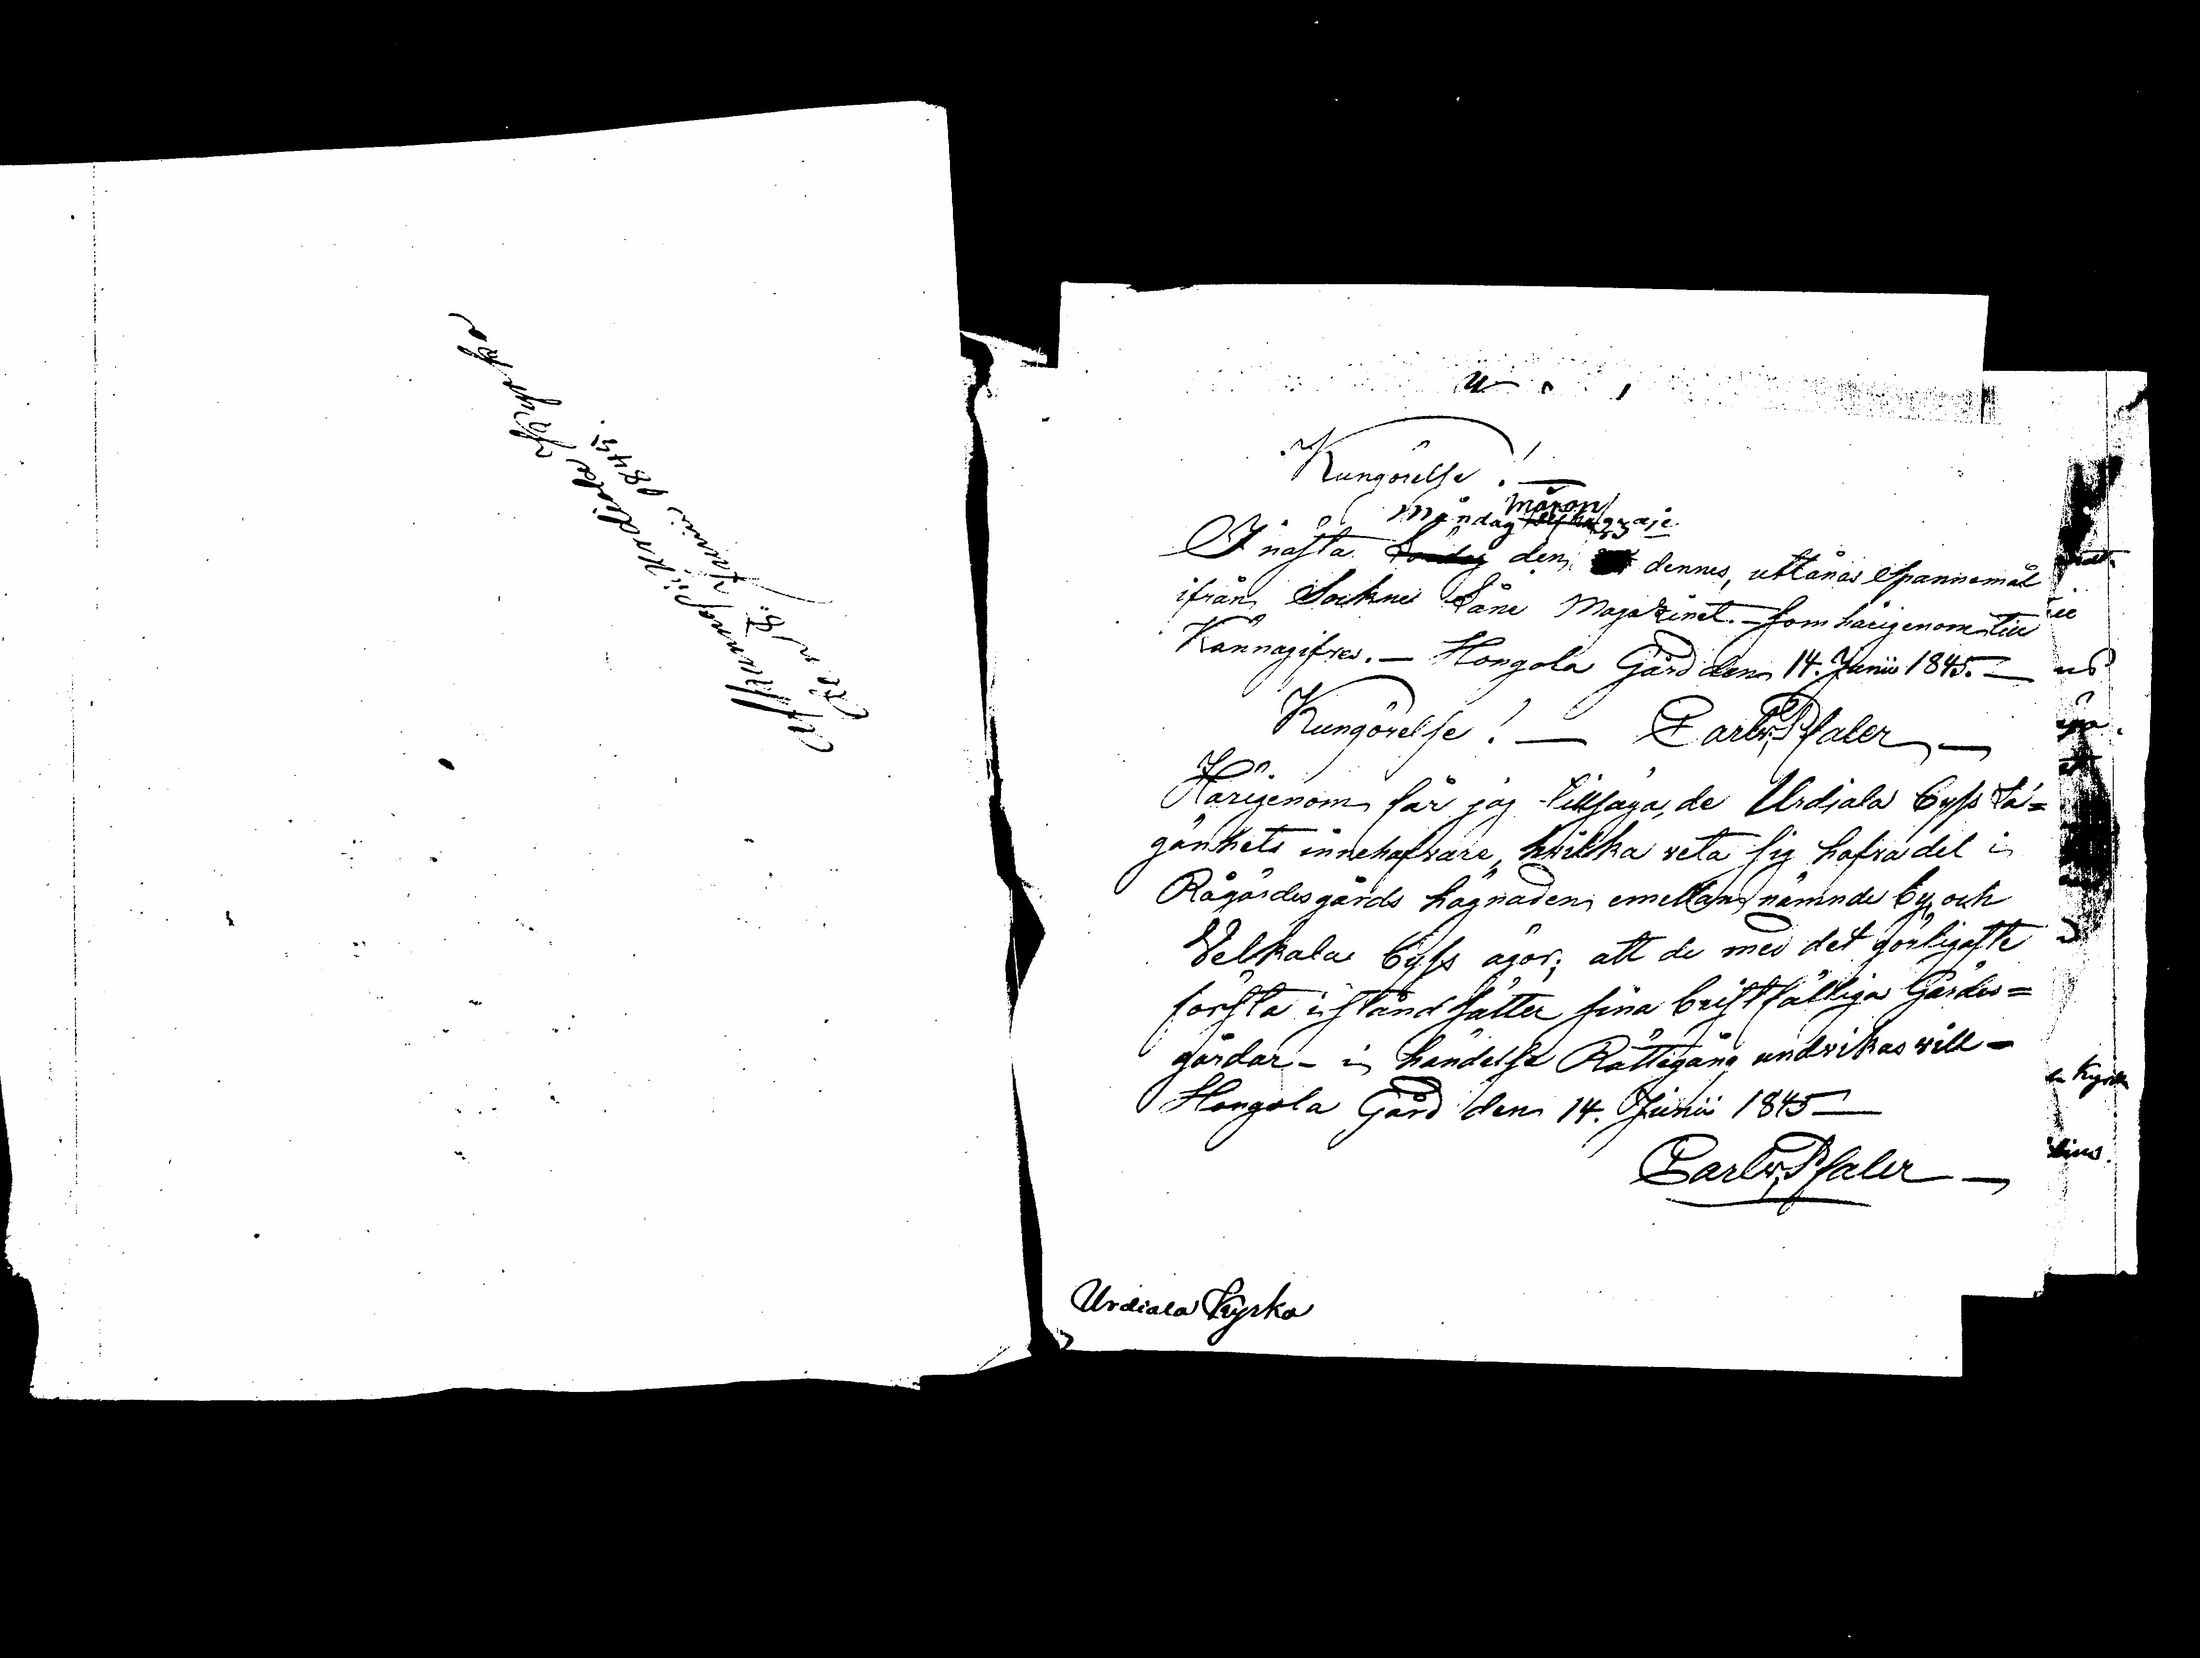 Afkunnas i Urdiala Kyrka
den 15. Junii 1845.
Kungörelse!—
måron
Måndag
I nästa Söndag den dennes, utlånas Spannemål
ifrån Sockne Låne Magazinet.— som härigenom till
Kännagifves.— Hongola Gård den 14. Junii 1845.—
Kungörelse!— Carl v. Pfaler—
Härigenom får jag tillsäga, de Urdiala byss lä=
genhets innehafvare, hvilka veta sig hafva del i
Rågärdesgårds hägnaden emellan nämnde by och
Velkala byss ägor; att de med det görligaste
första iståndsätter sina bristfälliga Gärdes=
gårdar— i händelse Rättegång undvikas vill—
Hongola Gård den 14. Junii 1845—
Carl v. Pfaler—
Urdiala Kyrka